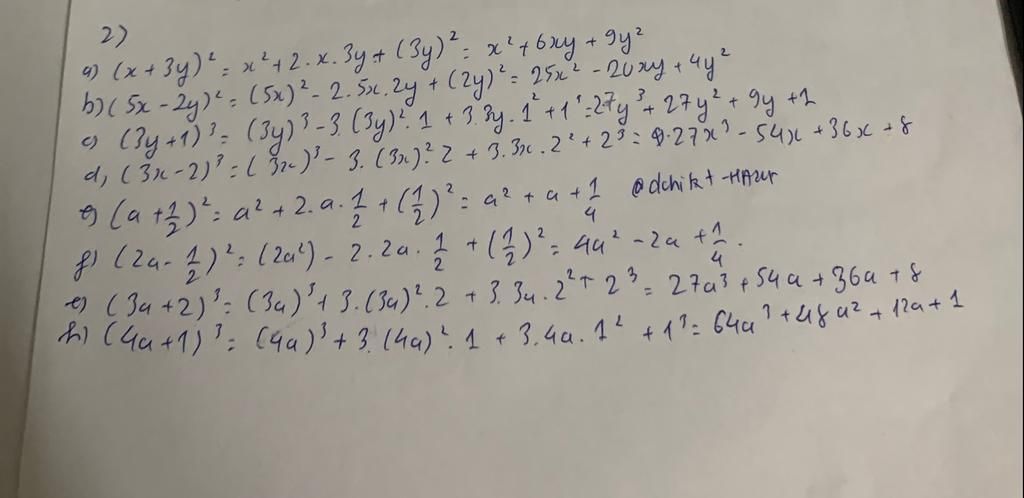 2)
a) (x + 3y)² = x² + 2. x. 3y + (3y)² = x² + 6xy + 9y²
b) (5x - 2y)² = (5x)² - 2. 5x. 2y + (2y)² = 25x² - 20xy + 4y²
c) (3y + 1)³ = (3y)³ - 3. (3y)². 1 + 3.3y. 1² + 1³ = 27y³ + 27y² + 9y + 1
d, (3x - 2)³ = (3x)³ - 3. (3x)². 2 + 3. 3x. 2² + 2³ = 27x³ - 54x + 36x + 8
e) (a + 1/2)² = a² + 2. a. 1/2 + (1/2)² = a² + a + 1/4
f) (2a - 1/2)² = (2a²) - 2. 2a. 1/2 + (1/2)² = 4a² - 2a + 1/4.
e) (3a + 2)³ = (3a)³ + 3. (3a)². 2 + 3. 3a. 2² + 2³ = 27a³ + 54a + 36a + 8
h) (4a + 1)³ = (4a)³ + 3. (4a)². 1 + 3. 4a. 1² + 1³ = 64a³ + 48a² + 12a + 1